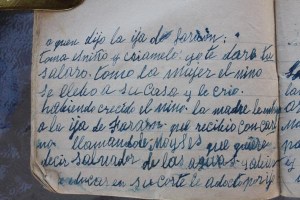 a quien dijo la ija de Faraon:
toma este niño y criamelo: yo te dare tu
salario. Como la mujer el niño
se llebo a su casa y le crio.
Habiendo crecido el niño la madre le
a la ija de Faraon que recibio con cari
ño llamandole Moyses que quiere
decir salvador de las aguas y
su corte le adopto por